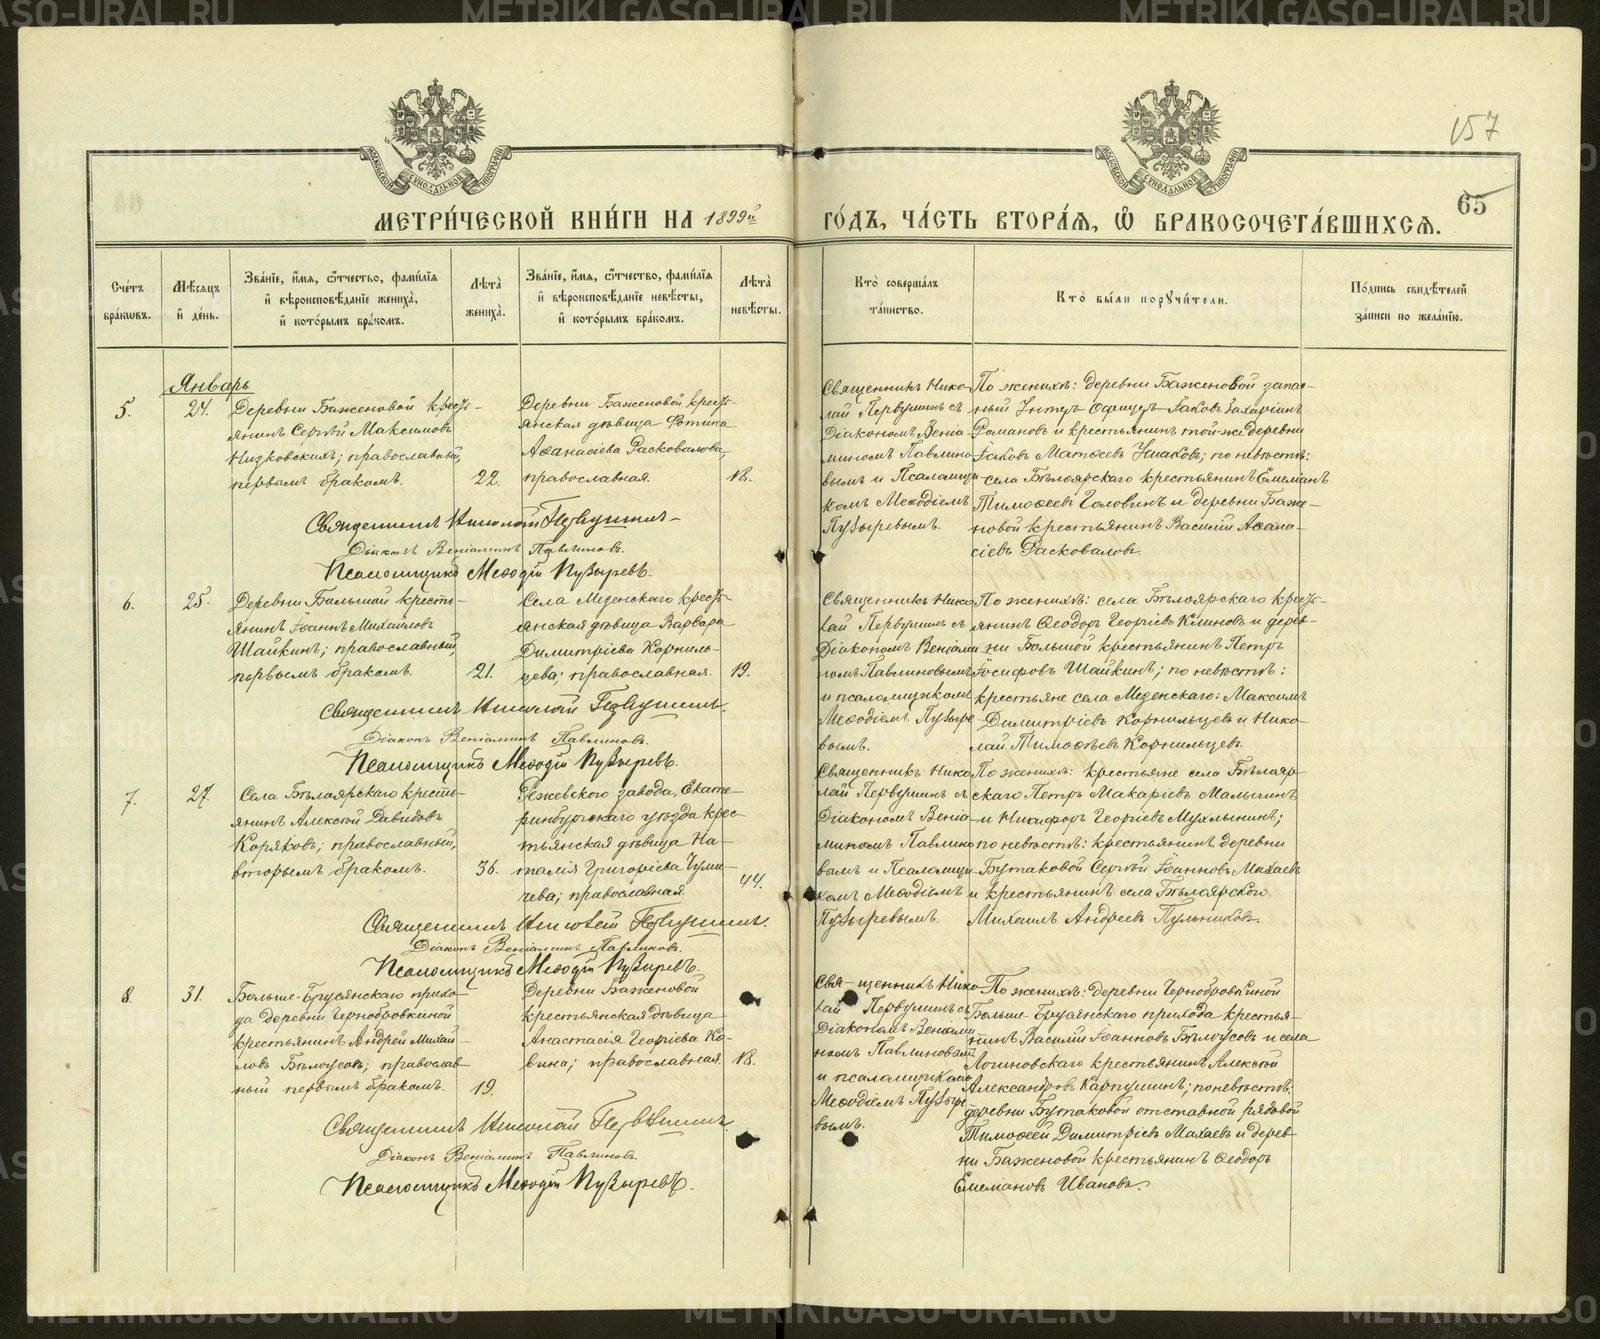 157
65
МЕТРИ́ЧЕСКОЙ КНИ́ГИ НА 1899й ГО́ДЪ, ЧА́СТЬ ВТОРА́Я, Ѿ БРАКОСОЧЕТА́ВШИХСЯ.
Сче́тъ бра́кωвъ.
Мѣ́сяцъ и҆ де́нь.
Зва́нїе, и҆́мя, ѻ҆́тчество, фами́лїя
и҆ вѣроисповѣ́данїе жениха̀,
и҆ кото́рымъ бра́комъ.
Лѣта̀ жениха̀.
Зва́нїе, и҆́мя, ѻ҆́тчество, фами́лїя
и҆ вѣроисповѣ́данїе невѣ́сты,
и҆ кото́рымъ бра́комъ.
Лѣта̀ невѣ́сты.
Кто̀ соверша́лъ та́инство.
Кто̀ бы́ли порꙋчи́тели.
По́дпись свидѣ́телей
за́писи по жела́нїю.
Январь
5.
24.
Деревни Баженовой кресть-
янинъ Сергѣй Максимовъ
Низковскихъ; православный,
первымъ бракомъ.
22.
Деревни Баженовой кресть-
янская дѣвица Фотина
Аѳанасіева Расковалова,
православная.
18.
Священникъ Нико-
лай Первушинъ съ
Діакономъ Веніа-
миномъ Павлино-
вымъ и Псаломщи-
комъ Меѳодіемъ
Пузыревымъ.
По женихѣ: деревни Баженовой запас-
ный Унтеръ Офицеръ Іаковъ Захаріинъ
Романовъ и крестьянинъ той-же деревни
Іаковъ Матѳеевъ Ушаковъ; по невѣстѣ:
села Бѣлоярскаго крестьянинъ Емеліанъ
Тимоѳеевъ Головинъ и деревни Баже-
новой крестьянинъ Василій Аѳана-
сіевъ Расковаловъ.
Священникъ Николай Первушинъ
Діаконъ Веніаминъ Павлиновъ.
Псаломщикъ Меѳодій Пузыревъ.
6.
25.
Деревни Большой кресть-
янинъ Іоаннъ Михайловъ
Шайкинъ; православный,
первымъ бракомъ.
21.
Села Мезенскаго кресть-
янская дѣвица Варвара
Димитріева Корниль-
цева; православная.
19.
Священникъ Нико-
лай Первушинъ съ
Діакономъ Веніами-
номъ Павлиновымъ
и псаломщикомъ
Меѳодіемъ Пузыре-
вымъ.
По женихѣ: села Бѣлоярскаго кресть-
янинъ Ѳеодоръ Георгіевъ Клиновъ и дерев-
ни Большой крестьянинъ Петръ
Іосифовъ Шайкинъ; по невѣстѣ:
крестьяне села Мезенскаго: Максимъ
Димитріевъ Корнильцевъ и Нико-
лай Тимоѳеевъ Корнильцевъ.
Священникъ Николай Первушинъ.
Діаконъ Веніаминъ Павлиновъ.
Псаломщикъ Меѳодій Пузыревъ.
7.
27.
Села Бѣлоярскаго кресть-
янинъ Алексѣй Давидовъ
Коряковъ; православный,
вторымъ бракомъ.
36.
Режевскаго завода, Екате-
ринбургскаго уѣзда крес-
тьянская дѣвица На-
талія Григоріева Чуми-
чева; православная.
44.
Священникъ Нико-
лай Первушинъ съ
Діакономъ Веніа-
миномъ Павлино-
вымъ и Псаломщи-
комъ Меѳодіемъ
Пузыревымъ.
По женихѣ: крестьяне села Бѣлояр-
скаго Петръ Макаріевъ Малыгинъ
и Никифоръ Георгіевъ Мухлынинъ;
по невѣстѣ: крестьянинъ деревни
Бутаковой Сергѣй Іоанновъ Махаевъ
и крестьянинъ села Бѣлоярскаго
Михаилъ Андреевъ Пульниковъ.
Священникъ Николай Первушинъ.
Діаконъ Веніаминъ Павлиновъ.
Псаломщикъ Меѳодій Пузыревъ.
8.
31.
Больше-Брусянскаго прихо-
да деревни Чернобровкиной
крестьянинъ Андрей Михай-
ловъ Бѣлоусовъ; православ-
ный первымъ бракомъ.
19.
Деревни Баженовой
крестьянская дѣвица
Анастасія Георгіева Ко-
вина; православная.
18.
Священникъ Нико-
лай Первушинъ съ
Діакономъ Веніами-
номъ Павлиновымъ
и псаломщикомъ
Меѳодіемъ Пузыре-
вымъ.
По женихѣ: деревни Чернобровкиной
Больше-Брусянскаго прихода крестья-
нинъ Василій Іоанновъ Бѣлоусовъ и села
Логиновскаго крестьянинъ Алексѣй
Александровъ Карпушинъ; по невѣстѣ:
деревни Бутаковой отставной рядовой
Тимоѳей Димитріевъ Махаевъ и дерев-
ни Баженовой крестьянинъ Ѳеодоръ
Емеліановъ Ивановъ.
Священникъ Николай Первушинъ.
Діаконъ Веніаминъ Павлиновъ.
Псаломщикъ Меѳодій Пузыревъ.
METRIKI.GASO-URAL.RU